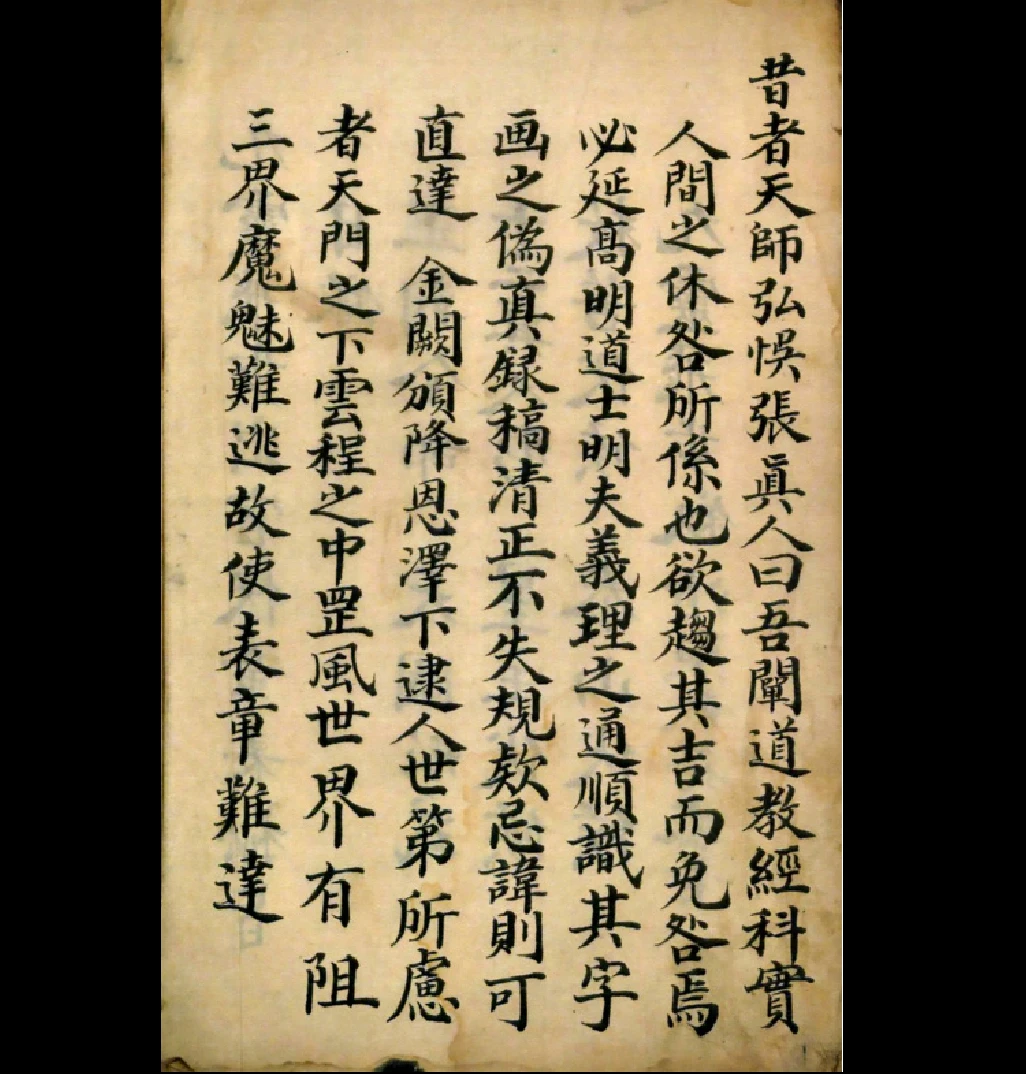 昔者天師弘悮張眞人曰吾闡道教經科實
人間之休咎所係也欲趨其吉而免咎焉
必延髙明道士明夫義理之通順識其字
画之偽真録稿清正不失規欵忌諱則可
直達　金闕頒降恩澤下逮人世第所慮
者天門之下雲程之中罡風世界有阻
三界魔魅難逃故使表章難達